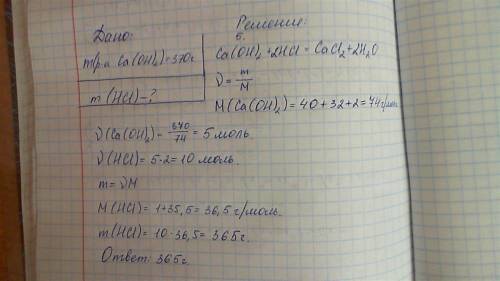 Дано:
m р-а Ca(OH)₂=370г
m (HCl)-?
Решение:
5.
Ca(OH)₂+2HCl=CaCl₂+2H₂O
ν=m/M
M(Ca(OH)₂)=40+32+2=74г/моль
ν(Ca(OH)₂)-370/74=5моль.
ν(HCl)=5·2=10моль.
m=νM
M(HCl)=1+35,5=36,5г/моль.
m(HCl)=10·36,5=365г.
Ответ: 365г.